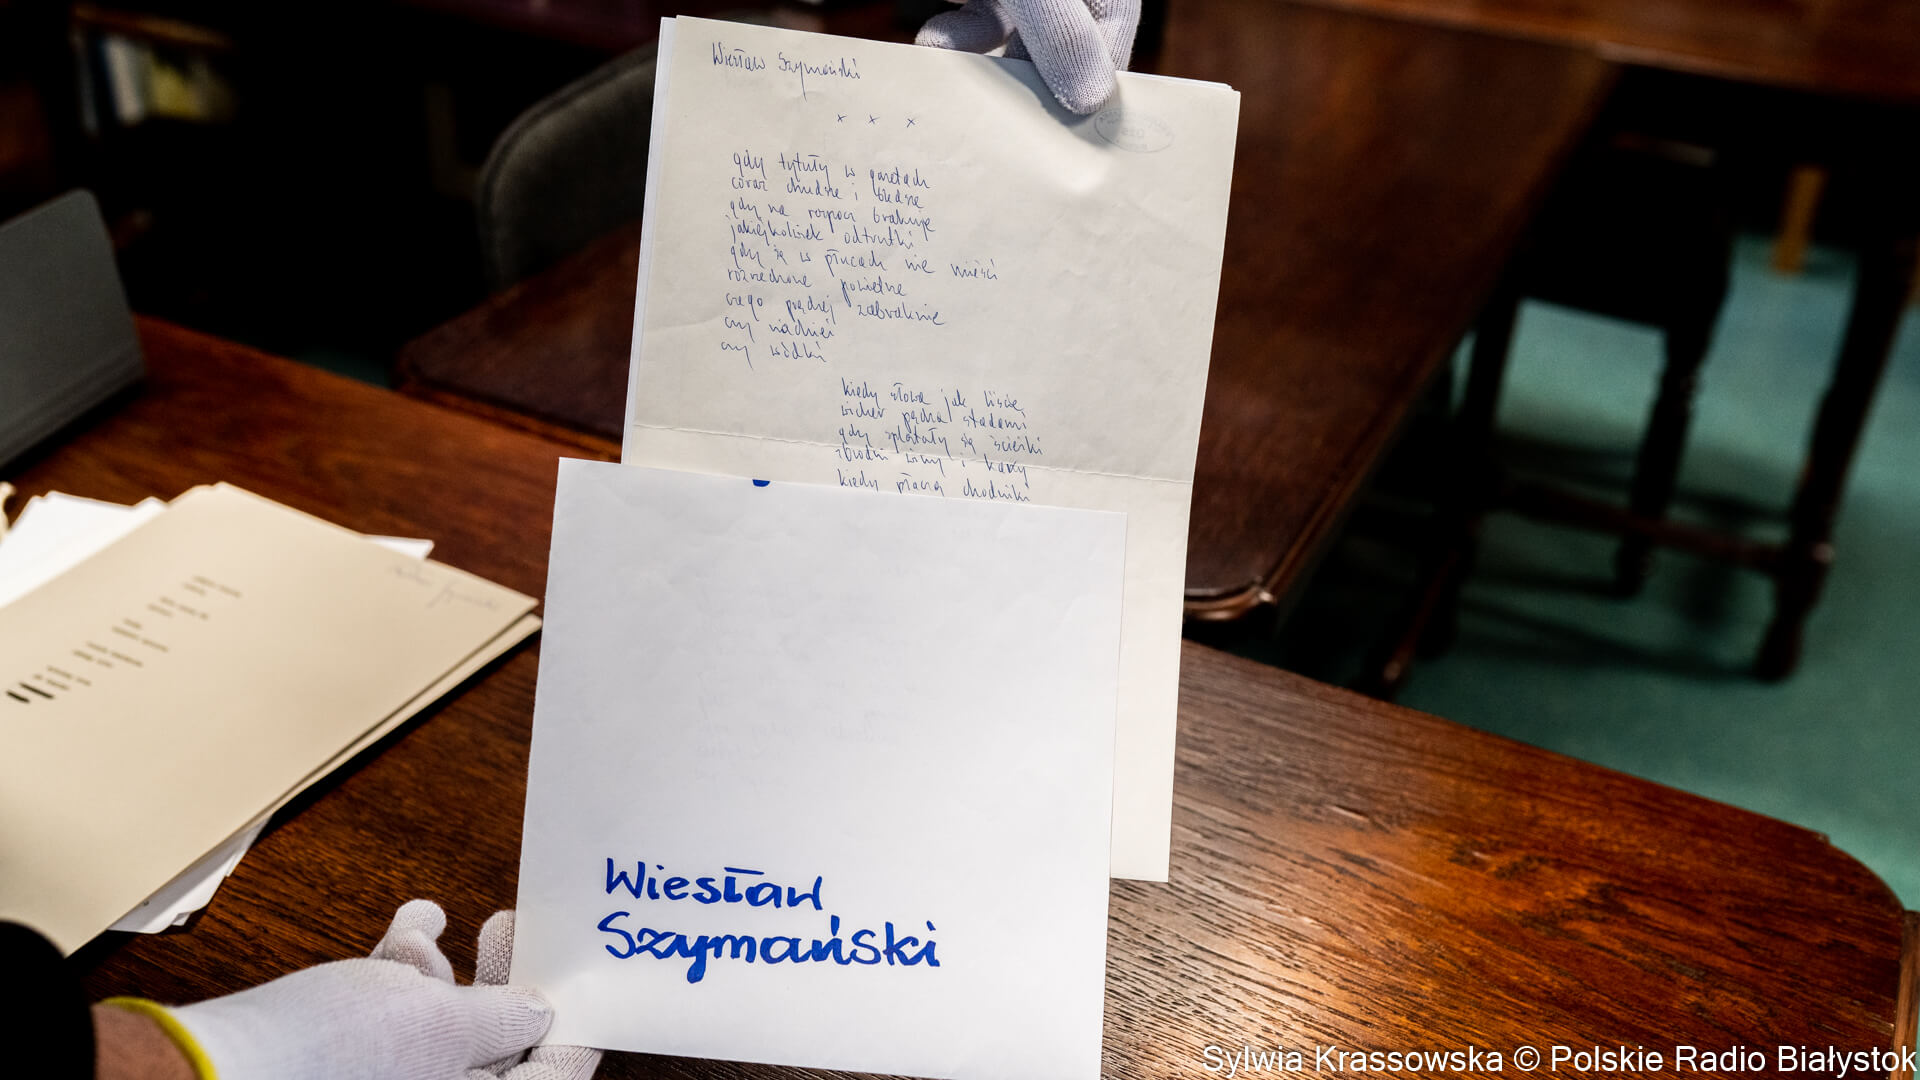 Wiesław Szymański
x x x
gdy tytuły w gazetach
coraz chudsze i bledsze
gdy na rozpacz brakuje
jakiejkolwiek odtrutki
gdy się w płucach nie mieści
rozrzedzone powietrze
czego prędzej zabraknie
czy nadziei
czy wódki
kiedy słowa jak liście
wicher pędzał stadami
gdy splątały się ścieżki
zbrodni winy i kary
kiedy płaczą chodniki
Wiesław
Szymański
Sylwia Krassowska © Polskie Radio Białystok